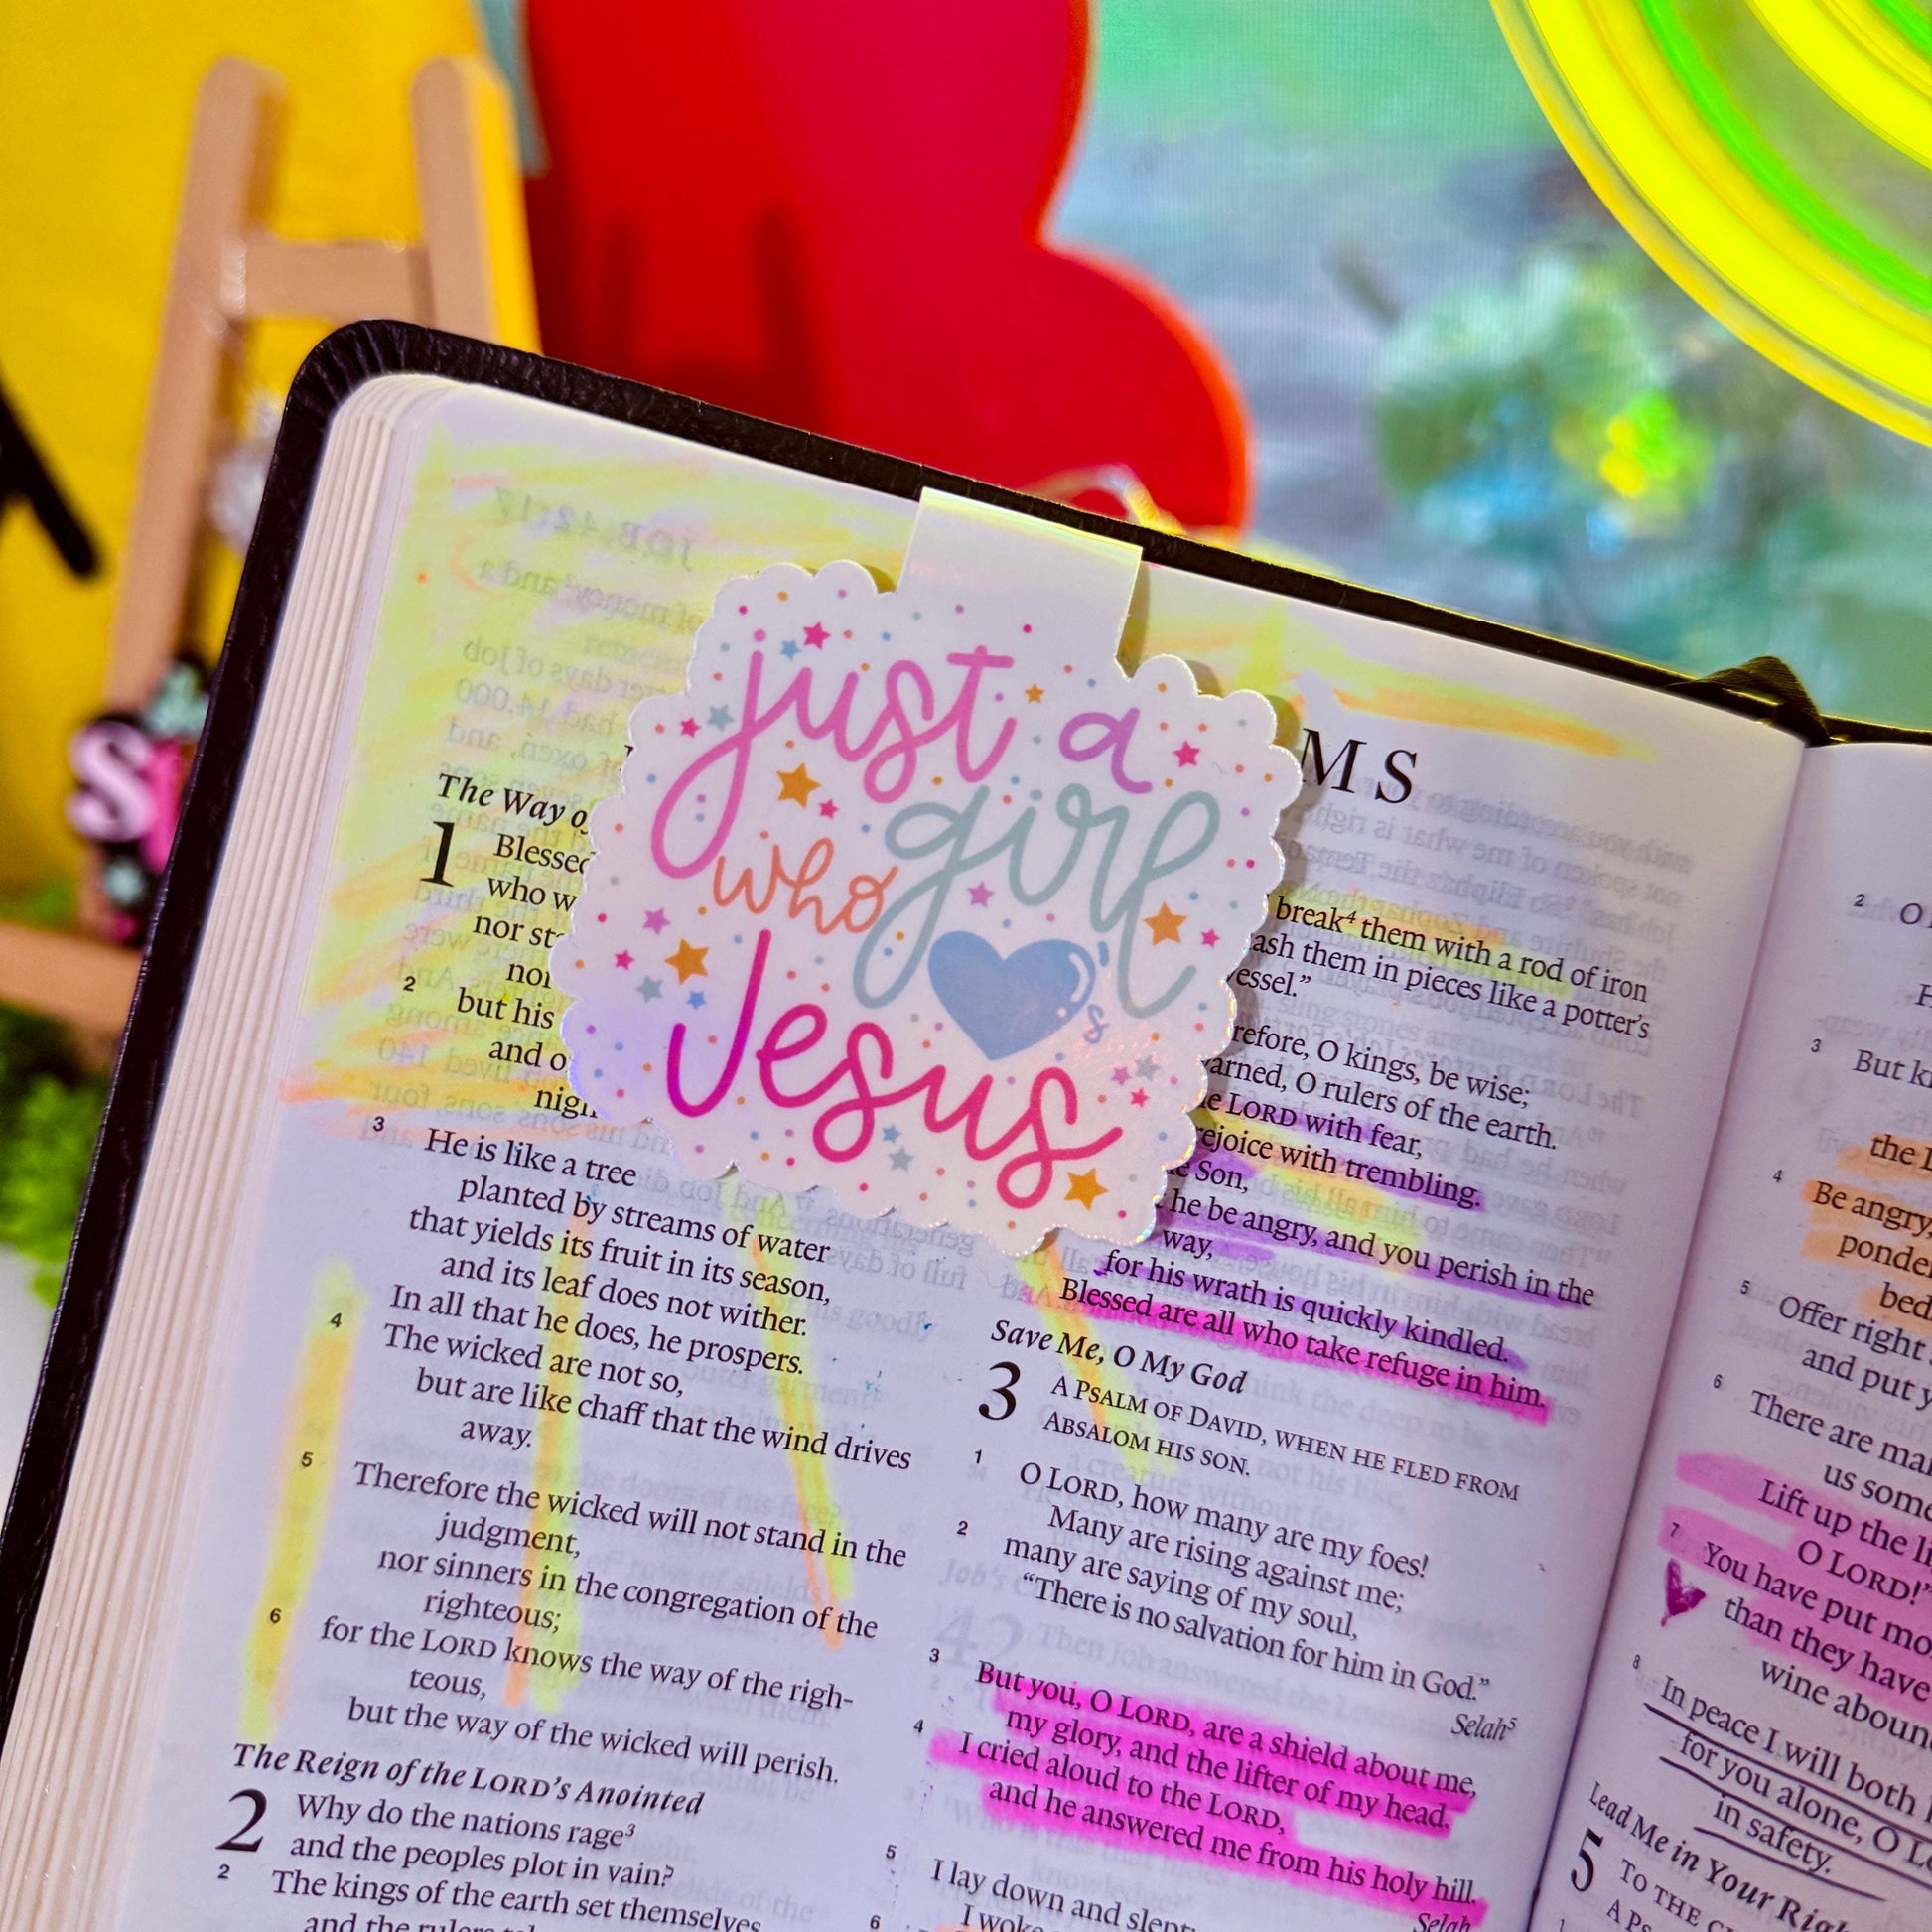 just a
girl
who
's
Jesus
MS
The Way
1 Blessed
who
nor
2 but his
and
3 He is like a tree
planted by streams of water
that yields its fruit in its season,
and its leaf does not wither.
In all that he does, he prospers.
4 The wicked are not so,
but are like chaff that the wind drives
away.
5 Therefore the wicked will not stand in the
judgment,
nor sinners in the congregation of the
righteous;
6 for the LORD knows the way of the righ-
teous,
but the way of the wicked will perish.
The Reign of the LORD's Anointed
2 Why do the nations rage3
and the peoples plot in vain?
2 The kings of the earth set themselves
and the
break4 them with a rod of iron
them in pieces like a potter's
O kings, be wise;
O rulers of the earth.
LORD with fear,
with trembling.
Son,
he be angry, and you perish in the
way,
for his wrath is quickly kindled.
Blessed are all who take refuge in him.
Save Me, O My God
3 A PSALM OF DAVID, WHEN HE FLED FROM
ABSALOM HIS SON.
1 O LORD, how many are my foes!
Many are rising against me;
2 many are saying of my soul,
"There is no salvation for him in God."
Selah5
3 But you, O LORD, are a shield about me,
my glory, and the lifter of my head.
4 I cried aloud to the LORD,
and he answered me from his holy hill.
Selah
5 I lay down and slept;
6 I woke
2 O
3 But
the
4 Be angry,
ponder
5 Offer right
and put
6 There are
us some
Lift up the
O LORD!"
7 You have put
than they have
wine
8 In peace I will both
for you alone, O
in safety.
Lead Me in Your
5 TO THE
A